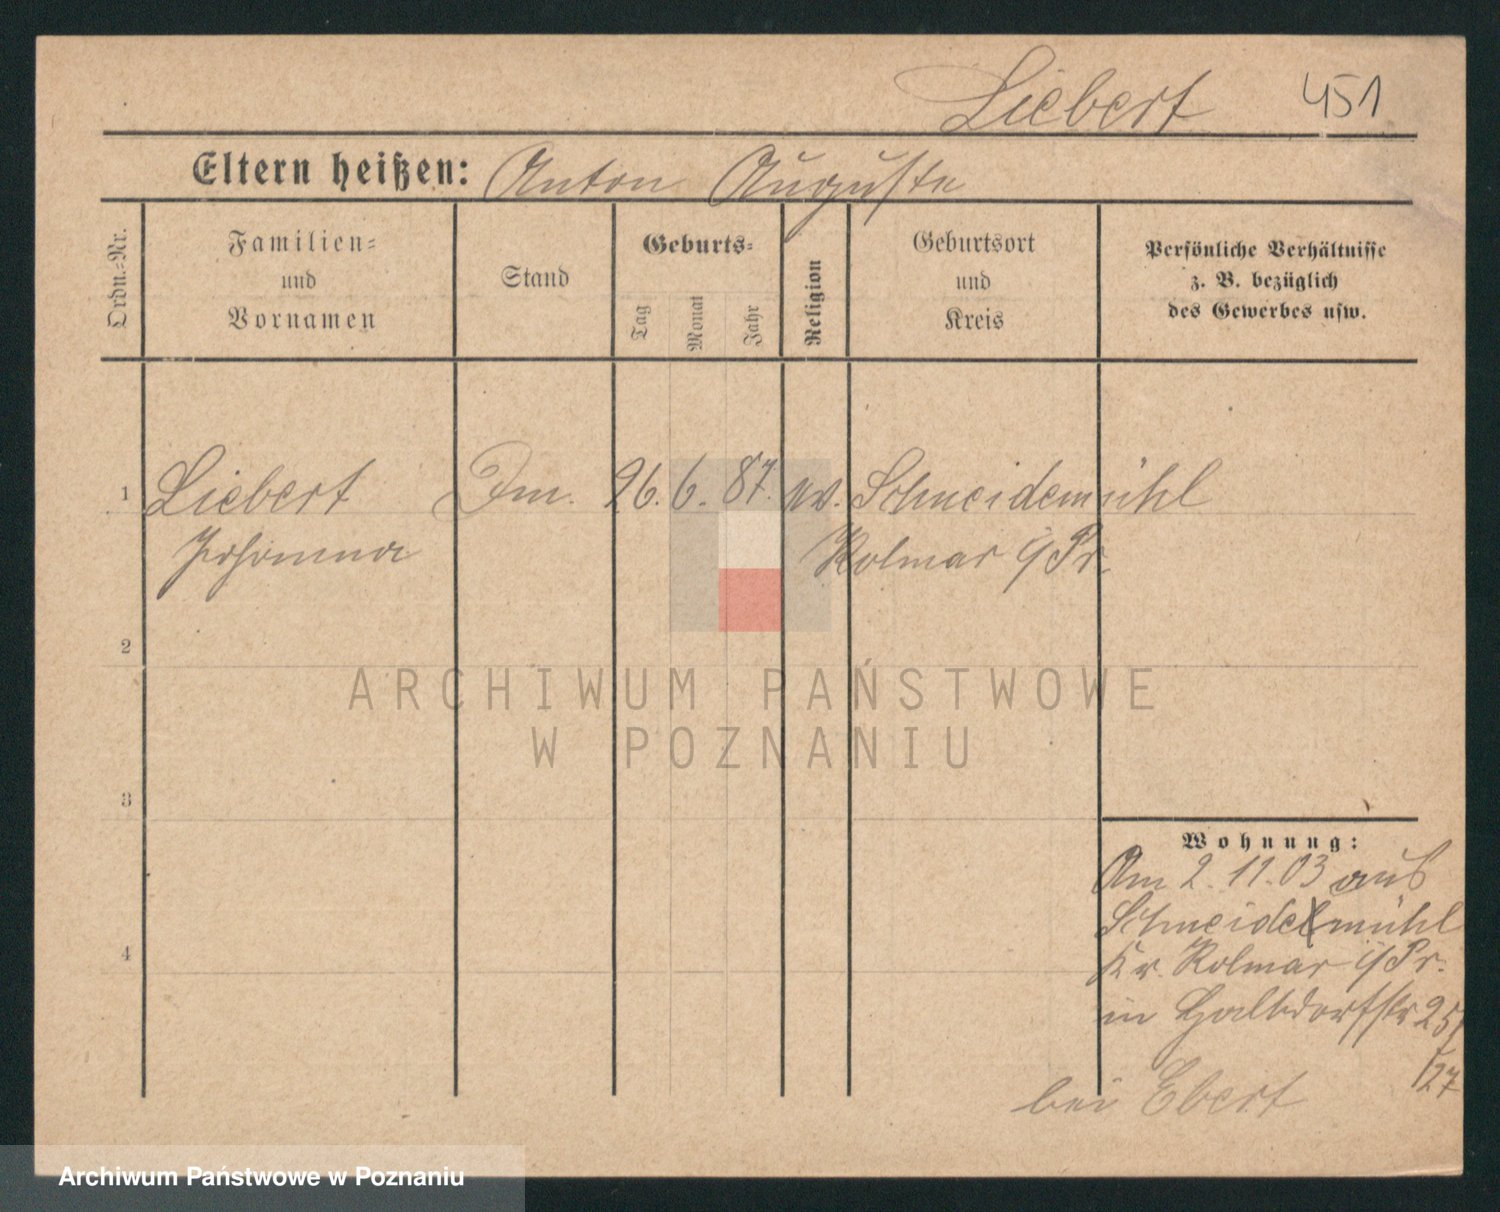 Liebert 451
Eltern heißen: Anton Auguste
Ordn.-Nr.
Familien-
und
Vornamen
Stand
Geburts-
Tag
Monat
Jahr
Religion
Geburtsort
und
Kreis
Persönliche Verhältnisse
z. B. bezüglich
des Gewerbes usw.
1 Liebert 26. 6. 87. ev. Schneidemühl
Johanna Kolmar i/Pr.
2
3
4
Wohnung:
Am 2. 11. 03 aus
Schneidemühl
Kr. Kolmar i/Pr.
in Halbdorfstr 25/
27
bei Ebert
ARCHIWUM PAŃSTWOWE
W POZNANIU
Archiwum Państwowe w Poznaniu